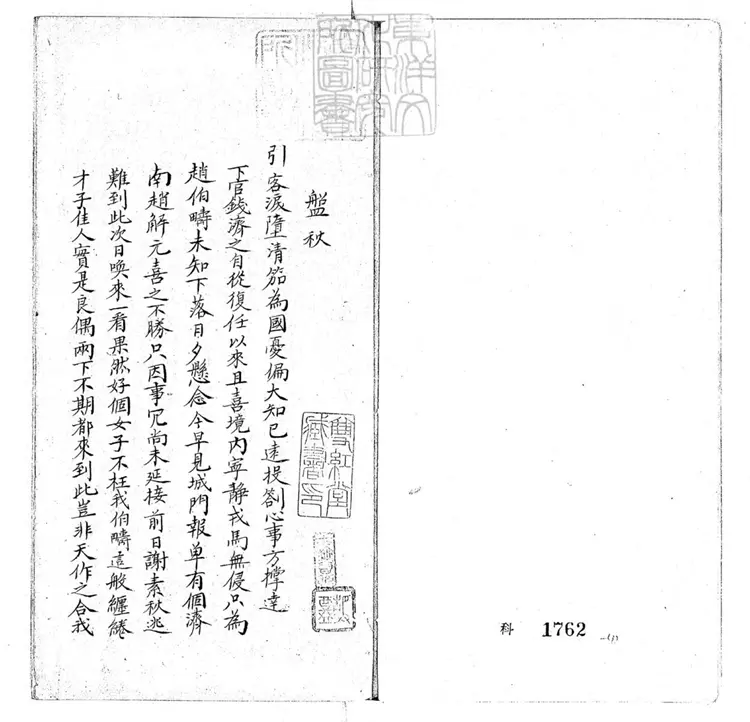 盤秋
引客淚墮清笳為國憂偏大知已遠投劄心事方撑達
下官錢濟之自從復任以來且喜境內寧靜戎馬無侵只為
趙伯疇未知下落日夕懸念今早見城門報单有個濟
南趙解元喜之不勝只因事冗尚未延接前日謝素秋逃
難到此次日喚來一看果然好個女子不枉我伯疇這般纏綣
才子佳人實是良偶兩下不期都來到此豈非天作之合我
東洋文化研究所圖書
雙紅堂藏書印
科 1762